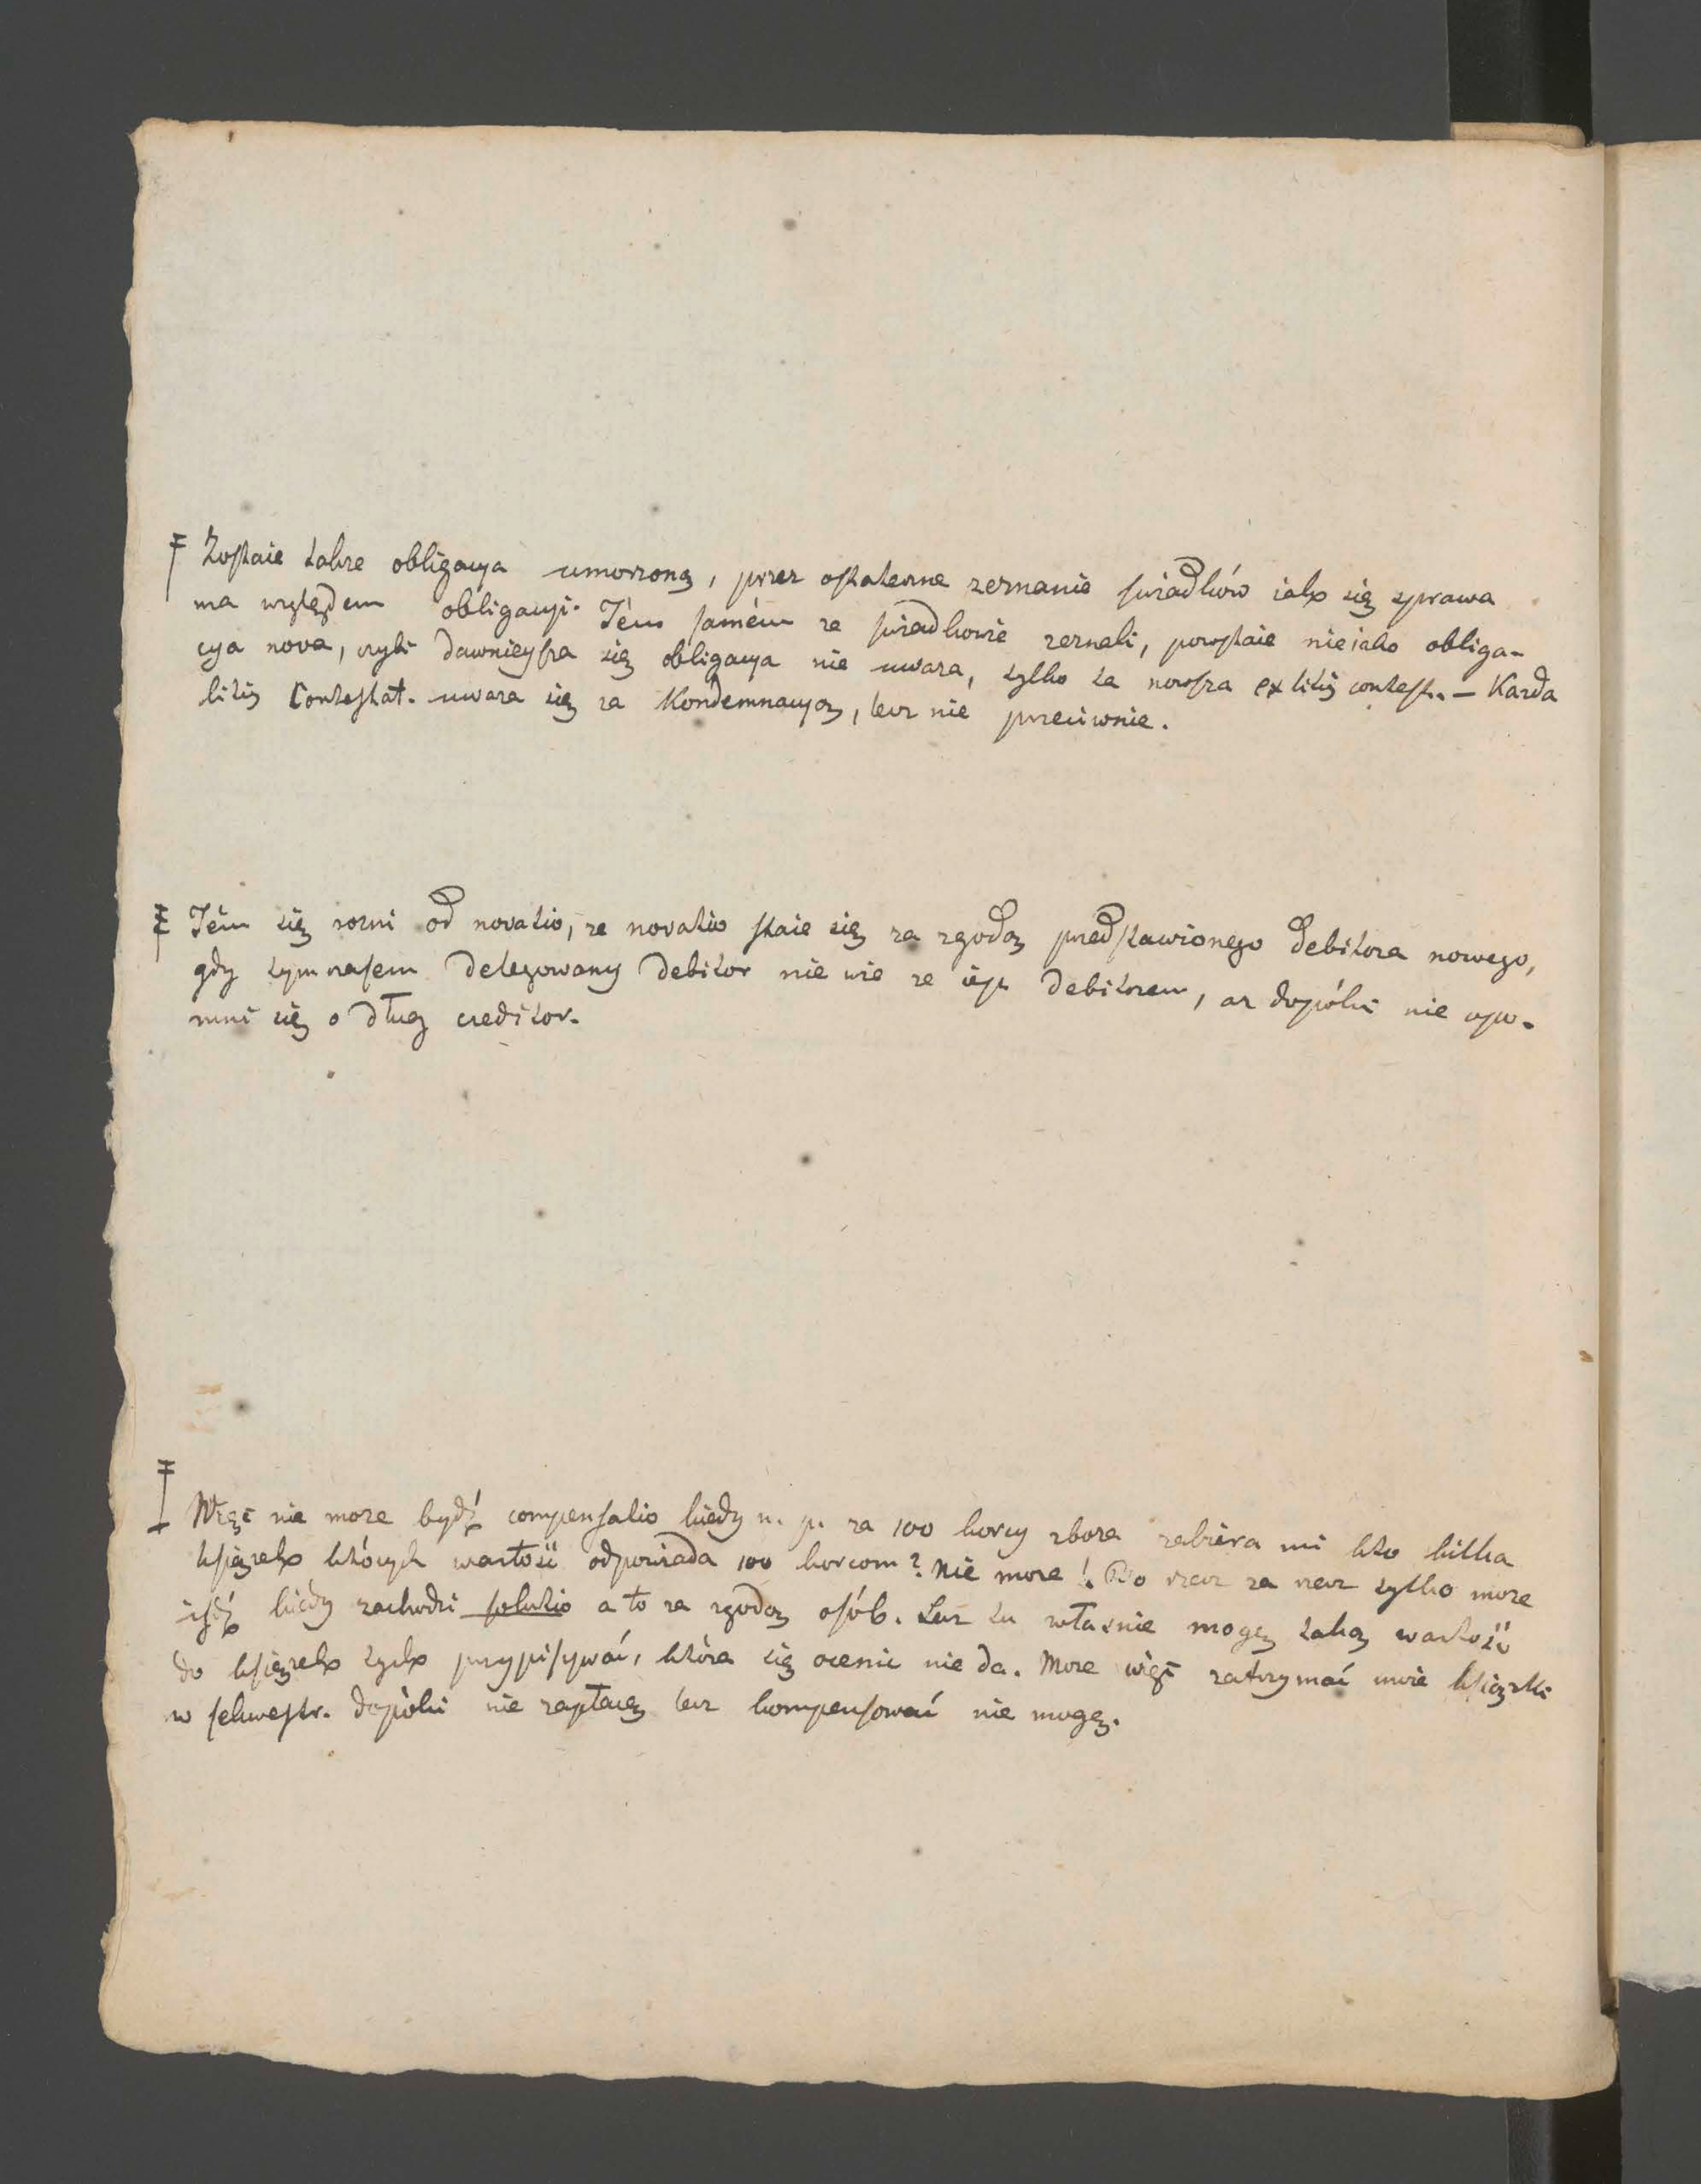 Zostaie takze obligacya umorzoną, przez ostateczne zeznanie swiadków iak się sprawa
ma względem obligacyi. Tém samém ze swiadkowie zeznali, powstaie nieiako obliga-
cya nova, czyli dawnieysza się obligacya nie uwaza, tylko ta nowsza ex litis contest. – Kazda
litis Contestat. uwaza się za Kondemnacyą, lecz nie przeciwnie.
Tém się rozni od novatio, ze novatio staie się za zgodą przedstawionego debitora nowego,
gdy tymczasem delegowany debitor nie wie ze iest debitorem, az dopóki nie upo-
mni się o dług creditor.
Więc nie moze bydź compensatio kiedy n. p. za 100 korcy zboza zabiera mi kto kilka
ksiązek których wartość odpowiada 100 korcom? Nie moze! Bo rzecz za rzecz tylko moze
iśdź kiedy zachodzi solutio a to za zgodą osób. Lecz tu własnie mogę taką wartość
do ksiązek tych przypisywać, która się ocenic nie da. Moze więc zatrzymać moie ksiązki
w sekwestr. dopóki nie zapłacę lecz kompensować nie mogę.